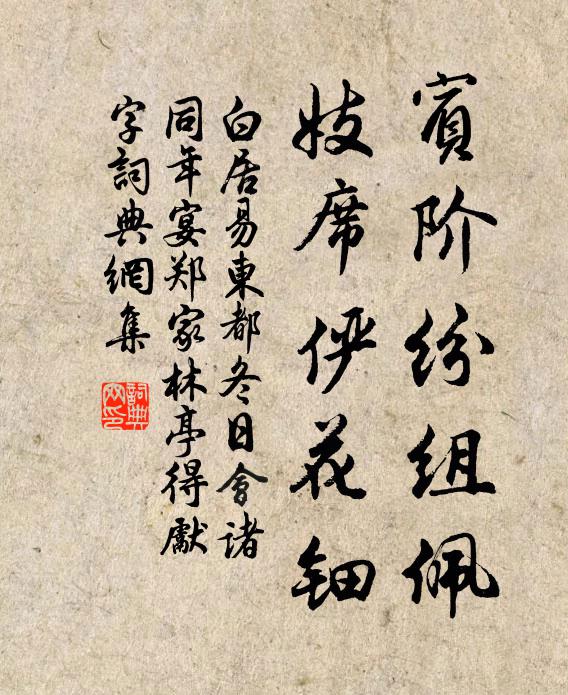 賓阶紛組佩
妓席俨花钿
白居易東都冬日會諸
同年宴郑家林亭得獻
字詞典網集
詞典
网印